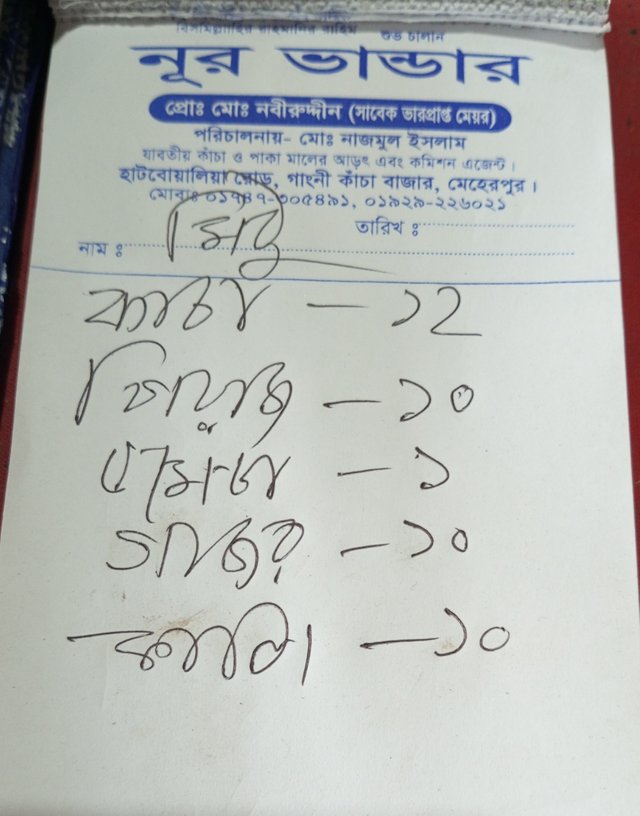 বিসমিল্লাহির রাহমানির রাহিম শুভ চালান
নূর ভান্ডার
প্রোঃ মোঃ নবীরুদ্দীন (সাবেক ভারপ্রাপ্ত মেয়র)
পরিচালনায়- মোঃ নাজমুল ইসলাম
যাবতীয় কাঁচা ও পাকা মালের আড়ৎ এবং কমিশন এজেন্ট।
হাটবোয়ালিয়া রোড, গাংনী কাঁচা বাজার, মেহেরপুর।
মোবাঃ ০১৭৪৭-৩০৫৪৯১, ০১৯২৯-২২৬০২১
তারিখ ঃ
নাম ঃ মিঠু
কাচা - ১২
পিয়াজ - ১০
টমেটো - ১
গাজর - ১০
- ১০